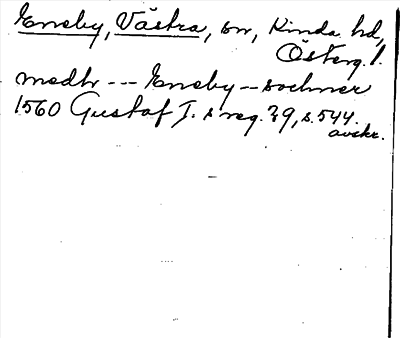 Eneby, Västra, sn, Kinda hd,
Österg. l.
medh --- Eneby -- sochner
1560 Gustaf I. s reg. 29, s. 544.
avskr.